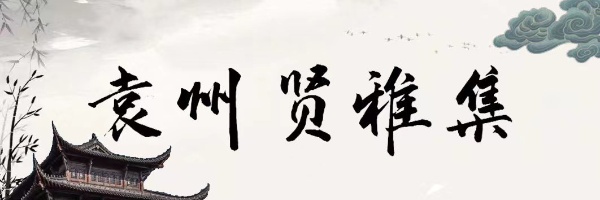 袁州贤雅集